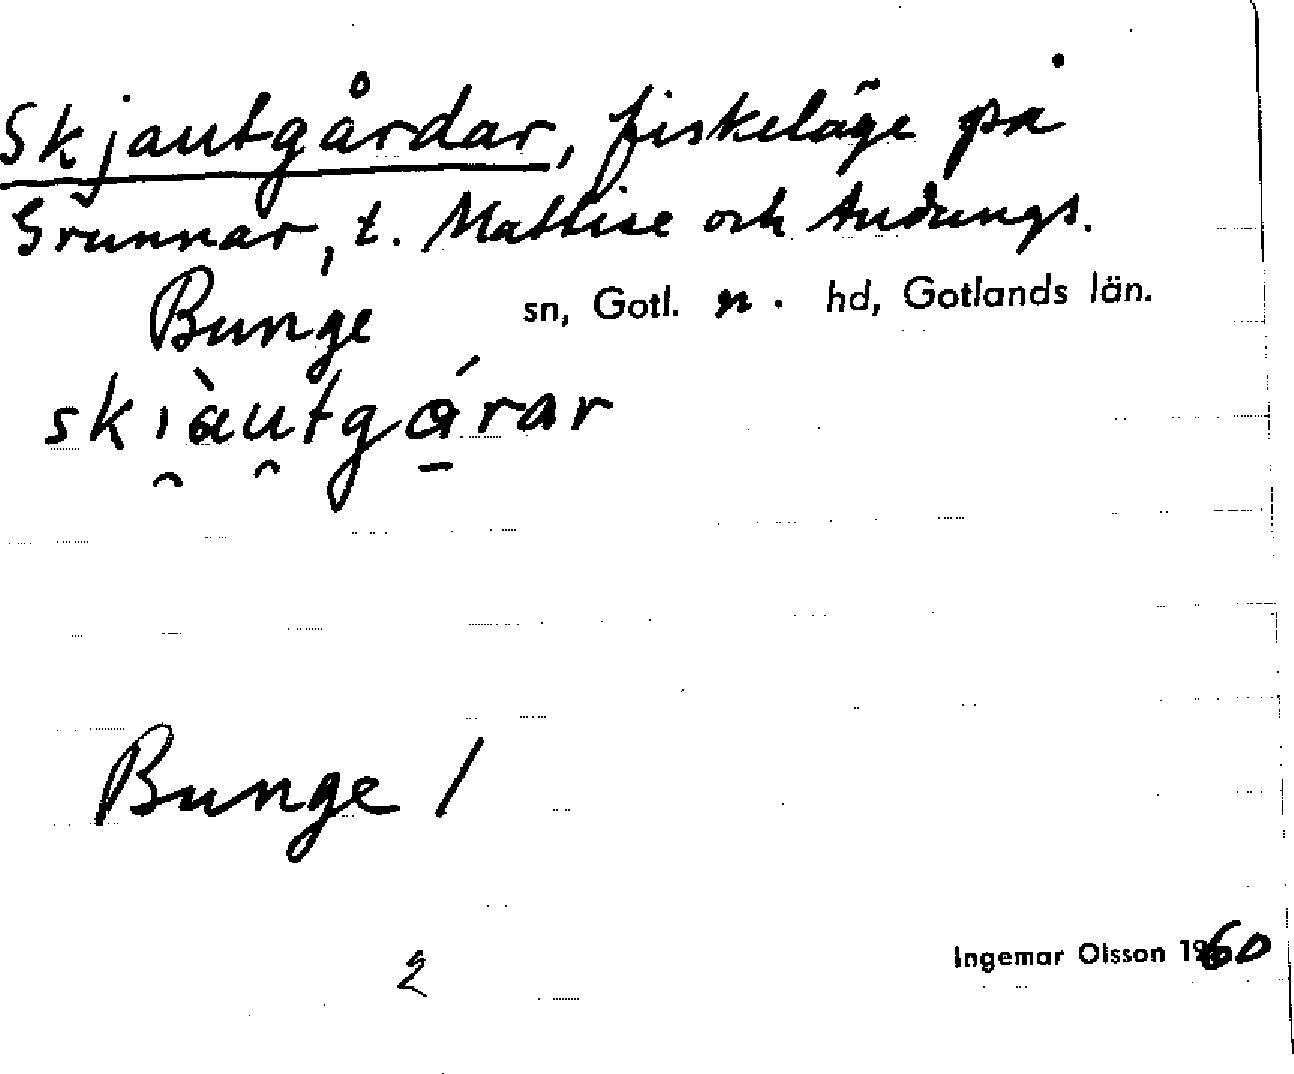 Skjautgårdar, fiskeläge på
Grunnar, t. Mattise och Audungs.
Bunge sn, Gotl. n. hd, Gotlands län.
ski̯àu̯tgá̱rar
Bunge 1
2
Ingemar Olsson 1960